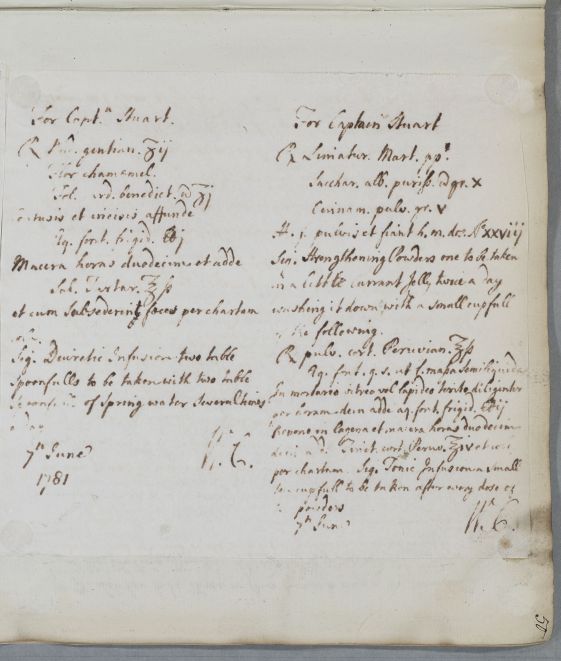 For Capt.n Stuart.
℞ Rad. gentian. ʒij
Flor chamæmel.
Fol. card. benedict. aa ʒj
contusis et incisis affunde
Aq. font. frigid. ℔j
Macera horas duodecim et adde
Sal. Tartar. ʒß
et cum subsederint fæces per chartam
Sig. Diuretic Infusion two table
spoonfulls to be taken with two table
of spring water several times
a Day
7th June
1781
W. C.
For Captain Stuart
℞ Limatur. Mart. ppt.
Sacchar. alb. puriss. aa gr. X
Cinnam. pulv. gr. V
M. f. pulvis et fiant h. m. dos. No XXViij
Sig. Strengthening Powders one to be taken
in a little currant Jelly twice a Day
washing it down with a small cupfull
of the following.
℞ pulv. cort. Peruvian. ʒß
Aq. font. q. s. ut f. massa semiliquida
In mortario vitreo vel lapideo terito diligenter
per horam dein adde aq. font. frigid. ℔ij
Repone in lagena et macera horas duodecim
Tinct. cort. Peruv. ʒiv et
per chartam. Sig. Tonic Infusion a small
cupfull to be taken after every dose of
powders
7th June
W. C.
57